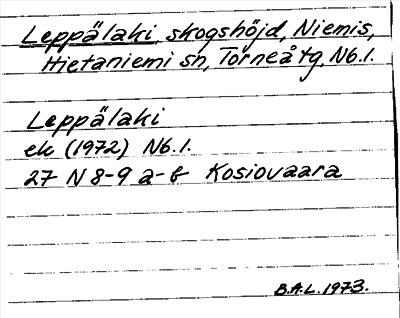 Leppälaki, skogshöjd, Niemis,
Hietaniemi sn, Torneå tg, Nb.l.
Leppälaki
ek (1972) Nb.l.
27 N 8-9 a-b Kosiovaara
B.A.L. 1973.